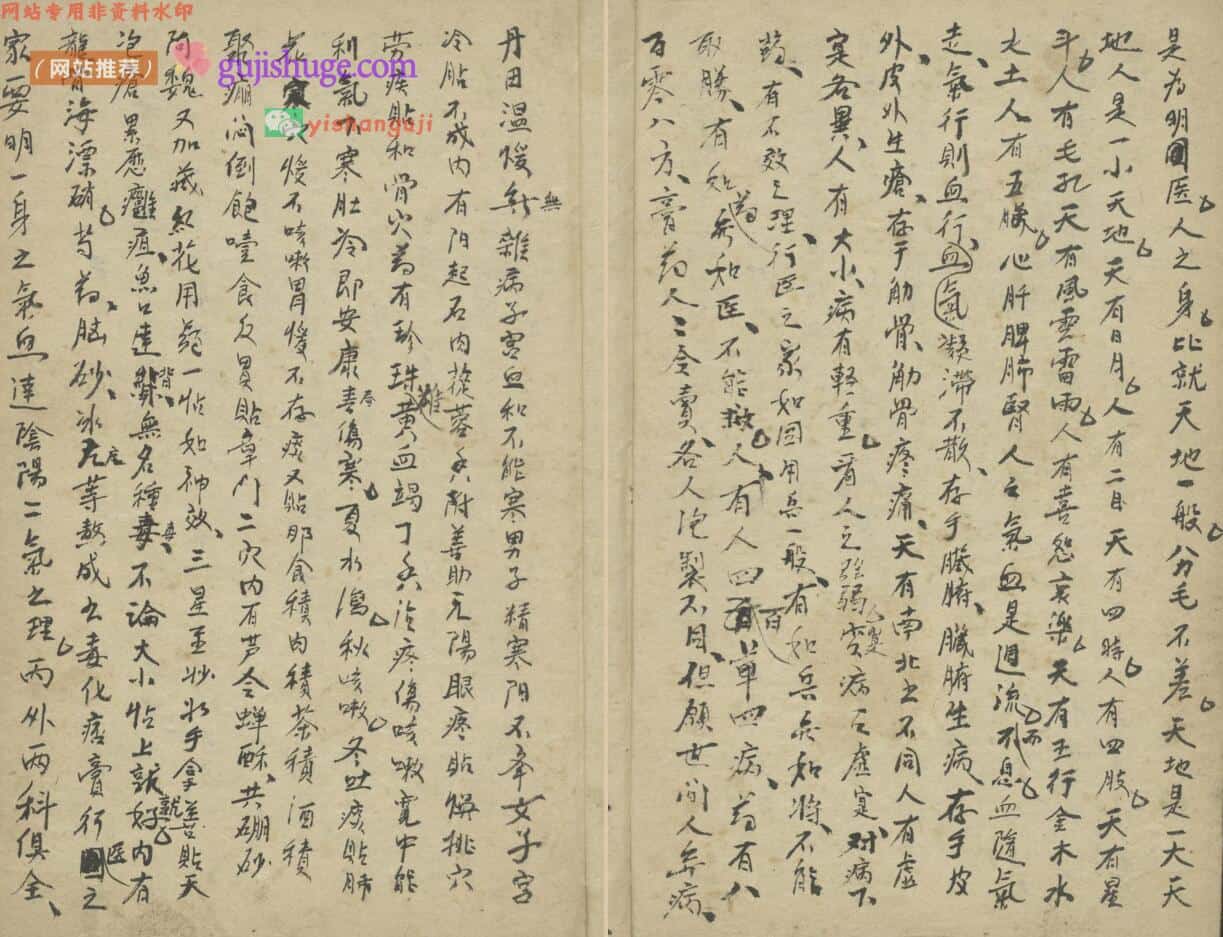 网站专用非资料水印
（网站推荐）
gujishuge.com
yishanguji
是为明医人之身比就天地一般分毛不差天地是一大天
地人是一小天地天有日月人有二目天有四時人有四肢天有星
斗人有毛孔天有風雲雷雨人有喜怒哀樂天有五行金木水
火土人有五臟心肝脾肺腎人之氣血是週流不息血隨氣
走氣行則血行血氣凝滞不散存于臟腑臟腑生病存于皮
外皮外生瘡存于肋骨肋骨疼痛天有南北之不同人有虚
寔各異人有大小病有輕重看人之强弱病之虚寔对病下
药有不效之理行医之家如同用兵一般有知兵不知将不能
取勝有知药不知医不能救人有人四百单四病药有八
百零八方膏药人人会賣各人泡製不同但願世间人無病
丹田温煖無雜病子宫血和不能寒男子精寒阳不举女子宫
冷貼不成内有阳起石肉蓯蓉香附善助元陽眼疼貼 穴
劳疾貼 和骨穴药有珍珠 黄血竭丁香治疼傷咳嗽寬中能
利氣 寒肚冷即安康春傷寒夏水瀉秋咳嗽冬吐痰貼肺
 穴煖不咳嗽胃煖不存痰又貼那食積肉積茶積酒積
 倒飽噎食反胃貼章门二穴内有芦会蝉酥共硼砂
阿魏又加藏紅花用药一帖如神效三星至妙 手拿善貼天
 瘡累歷癰疽魚口 背無名種毒不論大小帖上就好内有
龍骨海漂硝芎药脑砂冰片等熬成去毒化痞膏行医之
家要明一身之氣血達陰陽二氣之理内外两科俱全